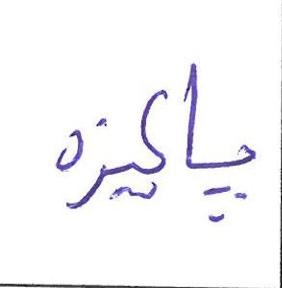 پاکیزہ